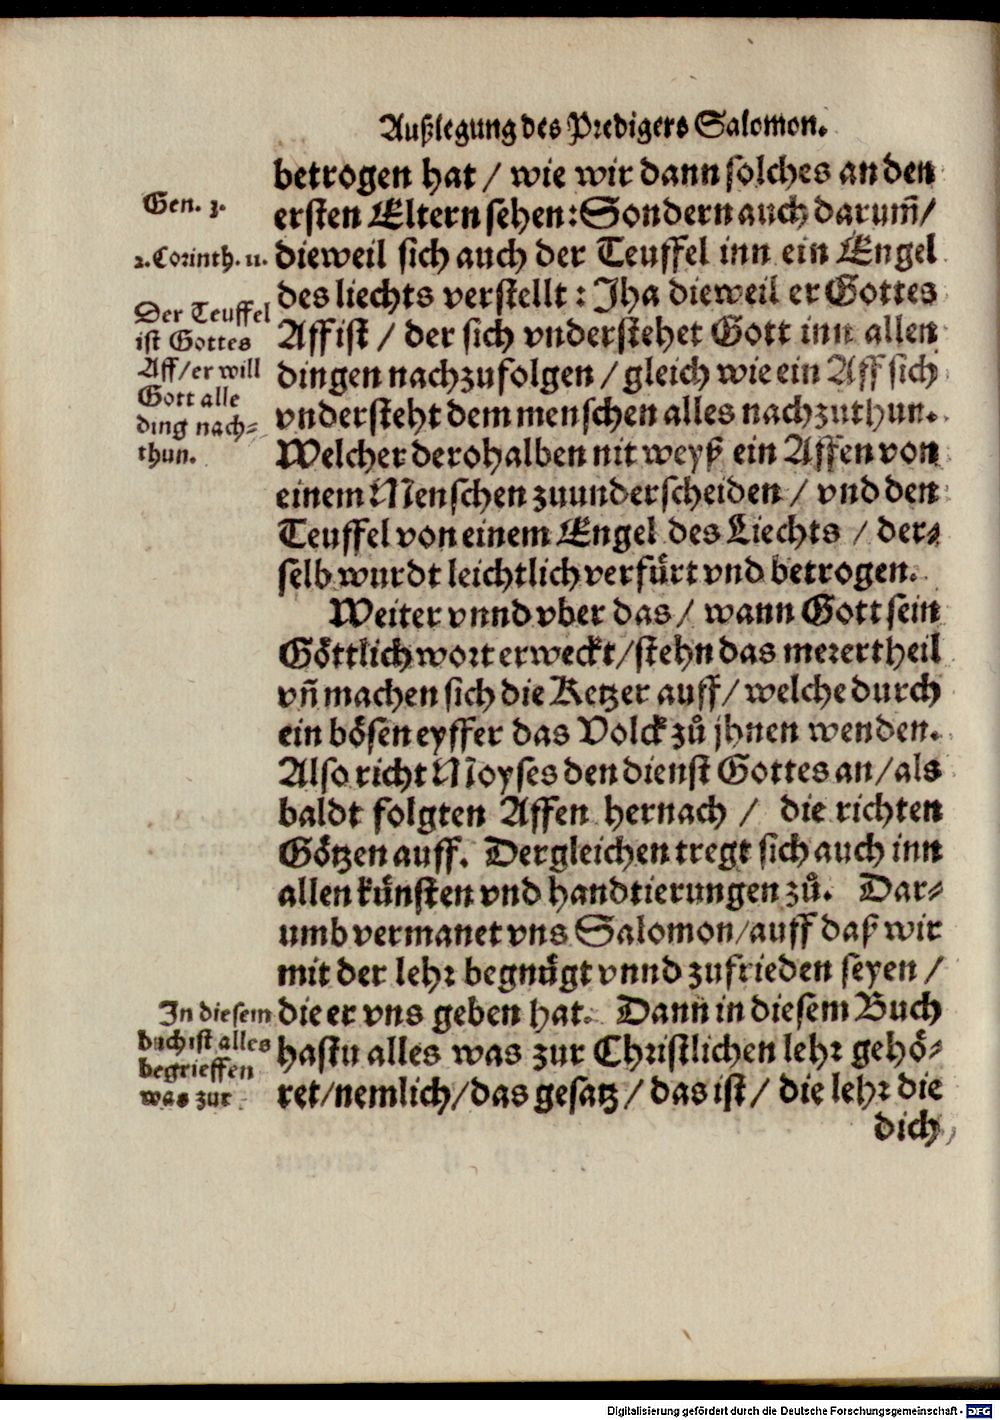 Außlegung des Predigers Salomon.
betrogen hat / wie wir dann solches an den
ersten Eltern sehen: Sondern auch darum̃/
dieweil sich auch der Teuffel inn ein Engel
des liechts verstellt: Jha dieweil er Gottes
Aff ist / der sich vnderstehet Gott inn allen
dingen nachzufolgen / gleich wie ein Aff sich
vndersteht dem menschen alles nachzuthun.
Welcher derohalben nit weyß ein Affen von
einem Menschen zuunderscheiden / vnd den
Teuffel von einem Engel des Liechts / der-
selb wurdt leichtlich verfuͤrt vnd betrogen.
Weiter vnnd vber das / wann Gott sein
Goͤttlich wort erweckt/stehn das merertheil
vñ machen sich die Ketzer auff/ welche durch
ein boͤsen eyffer das Volck zuͦ jhnen wenden.
Also richt Moyses den dienst Gottes an/als
baldt folgten Affen hernach / die richten
Goͤtzen auff. Dergleichen tregt sich auch inn
allen kuͤnsten vnd handtierungen zuͦ. Dar-
umb vermanet vns Salomon/auff daß wir
mit der lehr begnuͤgt vnnd zufrieden seyen /
die er vns geben hat. Dann in diesem Buch
hastu alles was zur Christlichen lehr gehoͤ-
ret/nemlich/das gesatz / das ist / die lehr die
dich
Gen. 3.
2.Corinth. 11.
Der Teuffel
ist Gottes
Aff/er will
Gott alle
ding nach-
thun.
In diesem
buch ist alles
begrieffen
was zur
Digitalisierung gefördert durch die Deutsche Forschungsgemeinschaft - DFG